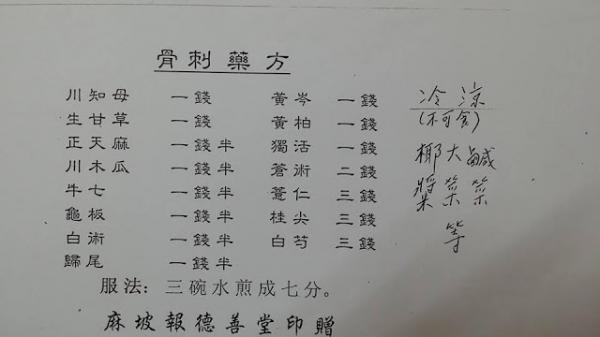 骨刺藥方
川知母 一錢 黃岑 一錢
生甘草 一錢 黃柏 一錢
正天麻 一錢半 獨活 一錢
川木瓜 一錢半 蒼術 二錢
牛七 一錢半 薏仁 三錢
龜板 一錢半 桂尖 三錢
白術 一錢半 白芍 三錢
歸尾 一錢半
服法：三碗水煎成七分。
麻坡報德善堂印贈
冷涼
(不可食)
椰大鹹
漿菜菜
等